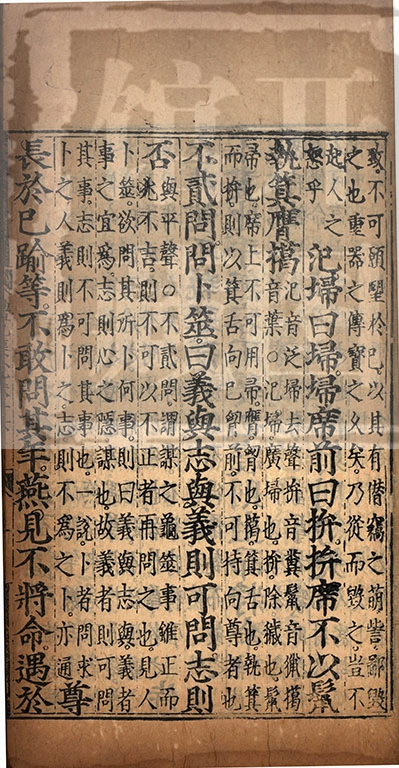 致不可願望於已以其有僭竊之萌訾鄙毀
之也重器之傳寶之久矣乃從而毀之豈不
起人之
怒乎
氾埽曰埽埽席前曰拚拚席不以鬛
執箕膺擖
氾音泛埽去聲拚音糞鬛音獵擖
音葉○氾埽廣埽也拚除穢也鬛
帚也席上不可用帚膺胷也擖箕舌也執箕
而拚則以箕舌向已胷前不可特向尊者也
不貳問問卜筮曰義與志與義則可問志則
否
與平聲○不貳問謂謀之龜筮事雖正而
兆不吉則不可以不正者再問之也見人
卜筮欲問其所卜何事則曰義與志與義者
事之宜爲志則心之隱謀也故義者則可問
其事志則不可問其事也一說卜者問求
卜之人義則爲卜之志則不爲之卜亦通
尊
長於已踰等不敢問其年燕見不將命遇於